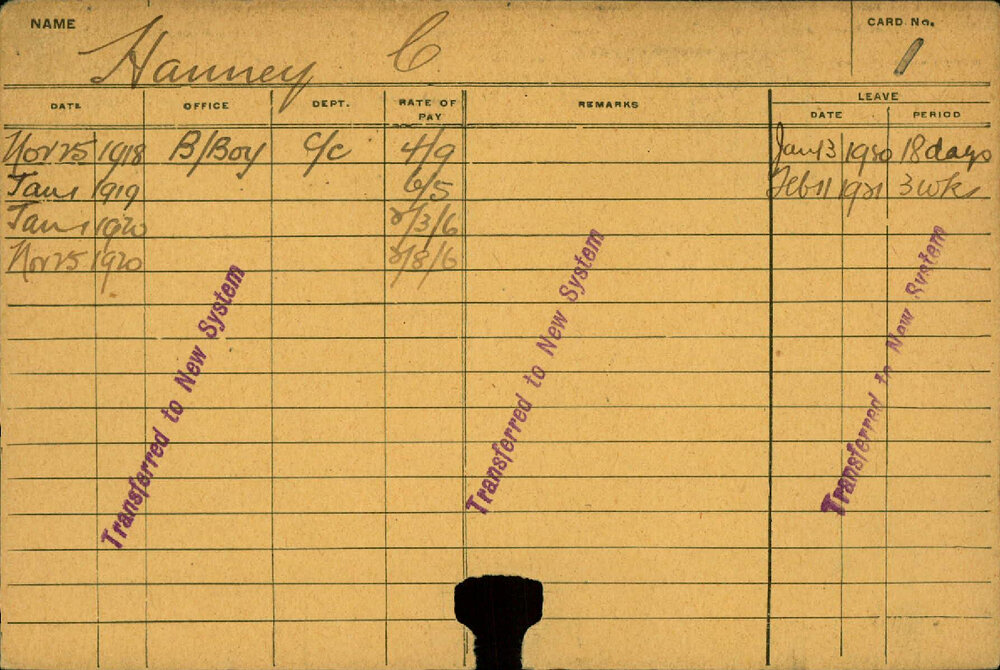 NAME Hanney C CARD No. 1
DATE OFFICE DEPT. RATE OF PAY REMARKS LEAVE
DATE PERIOD
Nov 25 1918 B/Boy C/C 4/9 Jan 13 1920 18 days
Jan 1 1919 6/5 Feb 11 1921 3 wks
Jan 1 1920 /3/6
Nov 25 1920 /8/6
Transferred to New System
Transferred to New System
Transferred to New System